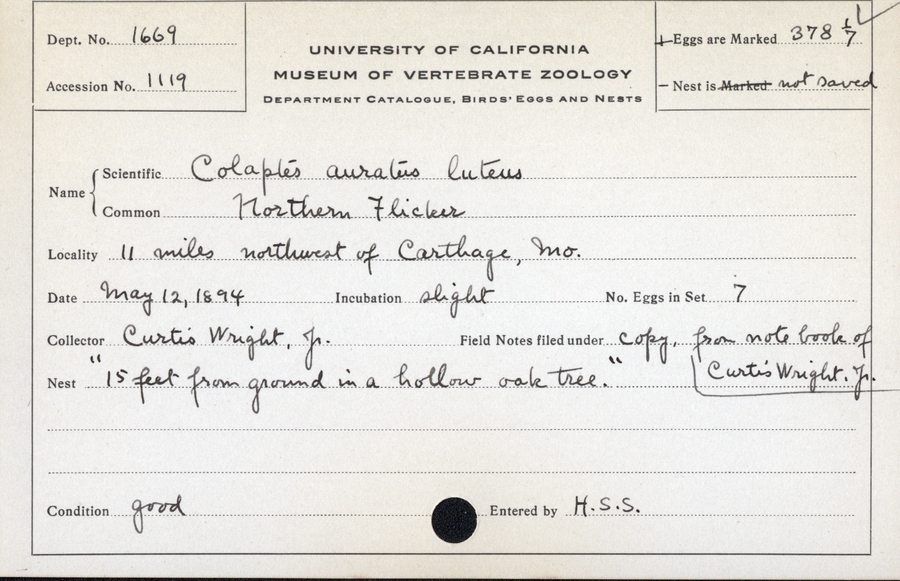 Dept. No. 1669
Accession No. 1119
UNIVERSITY OF CALIFORNIA
MUSEUM OF VERTEBRATE ZOOLOGY
DEPARTMENT CATALOGUE, BIRDS' EGGS AND NESTS
+ Eggs are Marked 378 1/7
- Nest is Marked not saved
Name
Scientific Colaptes auratus luteus
Common Northern Flicker
Locality 11 miles northwest of Carthage, Mo.
Date May 12, 1894 Incubation slight No. Eggs in Set 7
Collector Curtis Wright, Jr. Field Notes filed under copy, from note book of
Curtis Wright, Jr.
Nest "15 feet from ground in a hollow oak tree."
Condition good Entered by H.S.S.